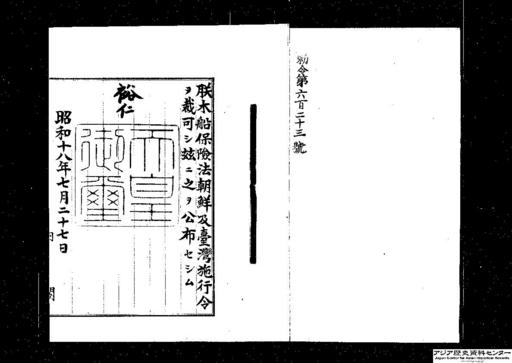 勅令第六百二十三號
朕木船保險法朝鮮及臺灣施行令
ヲ裁可シ玆ニ之ヲ公布セシム
裕仁
天皇御璽
昭和十八年七月二十七日
アジア歴史資料センター
Japan Center for Asian Historical Records